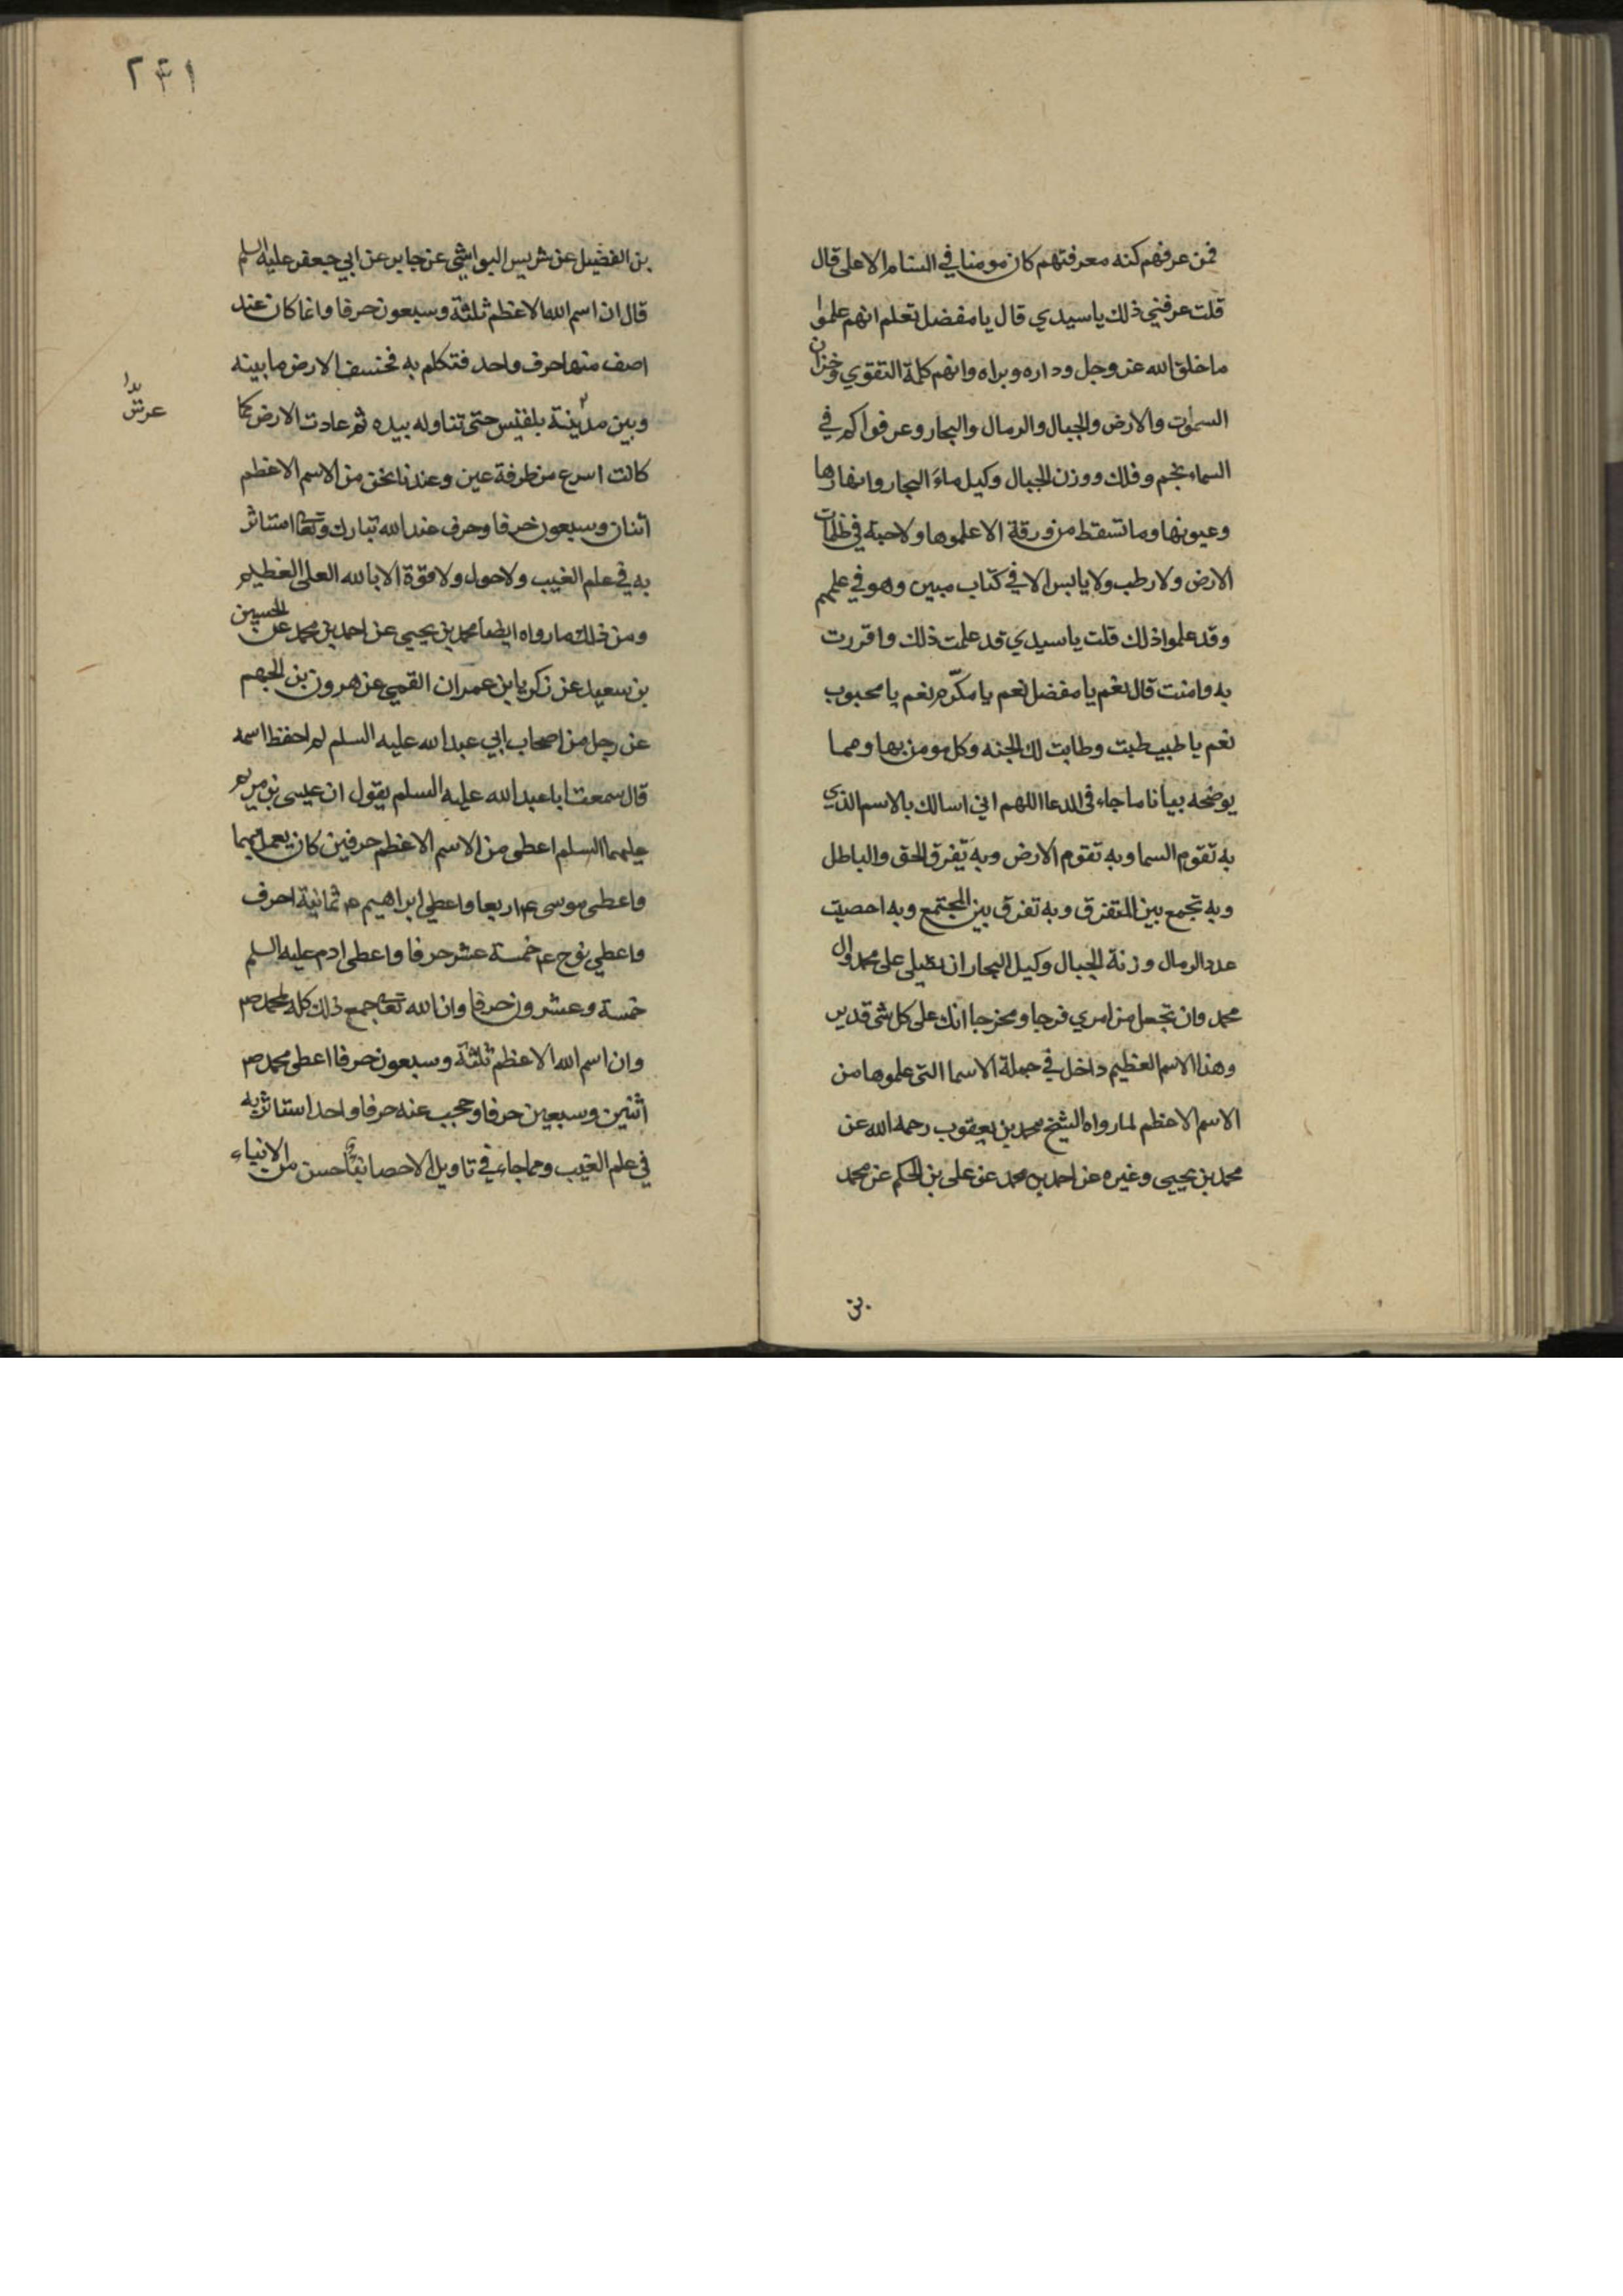 فمن عرفهم كنه معرفتهم كان مومنا في السنام الاعلى قال
قلت عرفني ذلك يا سيدي قال يا مفضل تعلم انهم علموا
ما خلق الله عز وجل وداره وبراه وانهم كلمة التقوي وخزان
السموات والارض والجبال والرمال والبحار وعرفوا كم في
السماء نجم وفلك ووزن الجبال وكيل ماء البحار وانهارها
وعيونها وما تسقط من ورقة الا علموها ولا حبة في ظلمات
الارض ولا رطب ولا يابس الا في كتاب مبين وهو في علمهم
وقد علموا ذلك قلت يا سيدي قد علمت ذلك واقررت
به وامنت قال نعم يا مفضل نعم يا مكرّم نعم يا محبوب
نعم يا طيب طبت وطابت لك الجنه وكل مومن بها ومما
يوضحه بيانا ما جاء في الدعا اللهم اني اسالك بالاسم الذي
به تقوم السما وبه تقوم الارض وبه تفرق الحق والباطل
وبه تجمع بين المتفرق وبه تفرق بين المجتمع وبه احصيت
عدد الرمال وزنة الجبال وكيل البحار ان تصلي على محمد وال
محمد وان تجعل من امري فرجا ومخرجا انك على كل شى قدير
وهذا الاسم العظيم داخل في جملة الاسما التى علموها من
الاسم الاعظم لما رواه الشيخ محمد بن يعقوب رحمه الله عن
محمد بن يحيى وغيره عن احمد بن محمد عن على بن الحكم عن محمد
بن
٢٤١
بن الفضيل عن شريس البوابشي عن جابر عن ابي جعفر عليه السلم
قال ان اسم الله الاعظم ثلثة وسبعون حرفا وانما كان عند
اصف منها حرف واحد فتكلم به فخسف الارض ما بينه
وبين مدينة بلقيس حتى تناوله بيده ثم عادت الارض كما
عرش
كانت اسرع من طرفة عين وعندنا نحن من الاسم الاعظم
اثنان وسبعون حرفا وحرف عند الله تبارك وتعا استاثر
به في علم الغيب ولا حول ولا قوة الا بالله العلى العظيم
ومن ذلك ما رواه ايضا محمد بن يحيى عن احمد بن محمد عن الحسين
بن سعيد عن زكريا بن عمران القمي عن هرون بن الجهم
عن رجل من اصحاب ابي عبد الله عليه السلم لم احفظ اسمه
قال سمعت ابا عبد الله عليه السلم يقول ان عيسى بن مريم
عليهما السلم اعطى من الاسم الاعظم حرفين كان يعمل بهما
واعطى موسى ع اربعا واعطي ابراهيم ع ثمانية احرف
واعطي نوح ع خمسة عشر حرفا واعطى ادم عليه السلم
خمسة وعشرون حرفا وان الله تعا جمع ذلك كله لمحمد ص
وان اسم الله الاعظم ثلثة وسبعون حرفا اعطى محمد ص
اثنين وسبعين حرفا وحجب عنه حرفا واحدا ستاثر به
في علم الغيب ومما جاء في تاويل الاحصا نبا حسن من الانبياء